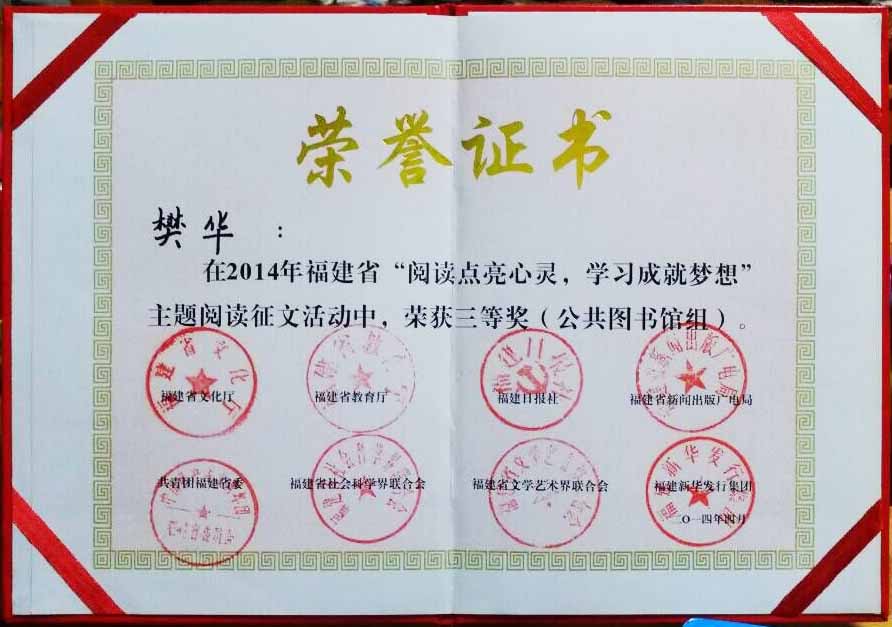 荣誉证书
樊华：
在2014年福建省“阅读点亮心灵，学习成就梦想”
主题阅读征文活动中，荣获三等奖（公共图书馆组）。
福建省文化厅
福建省文化厅 福建省教育厅 福建日报社 福建省新闻出版广电局
福建日报社
共青团福建省委 福建省社会科学界联合会 福建省文学艺术界联合会 福建新华发行集团
二〇一四年四月